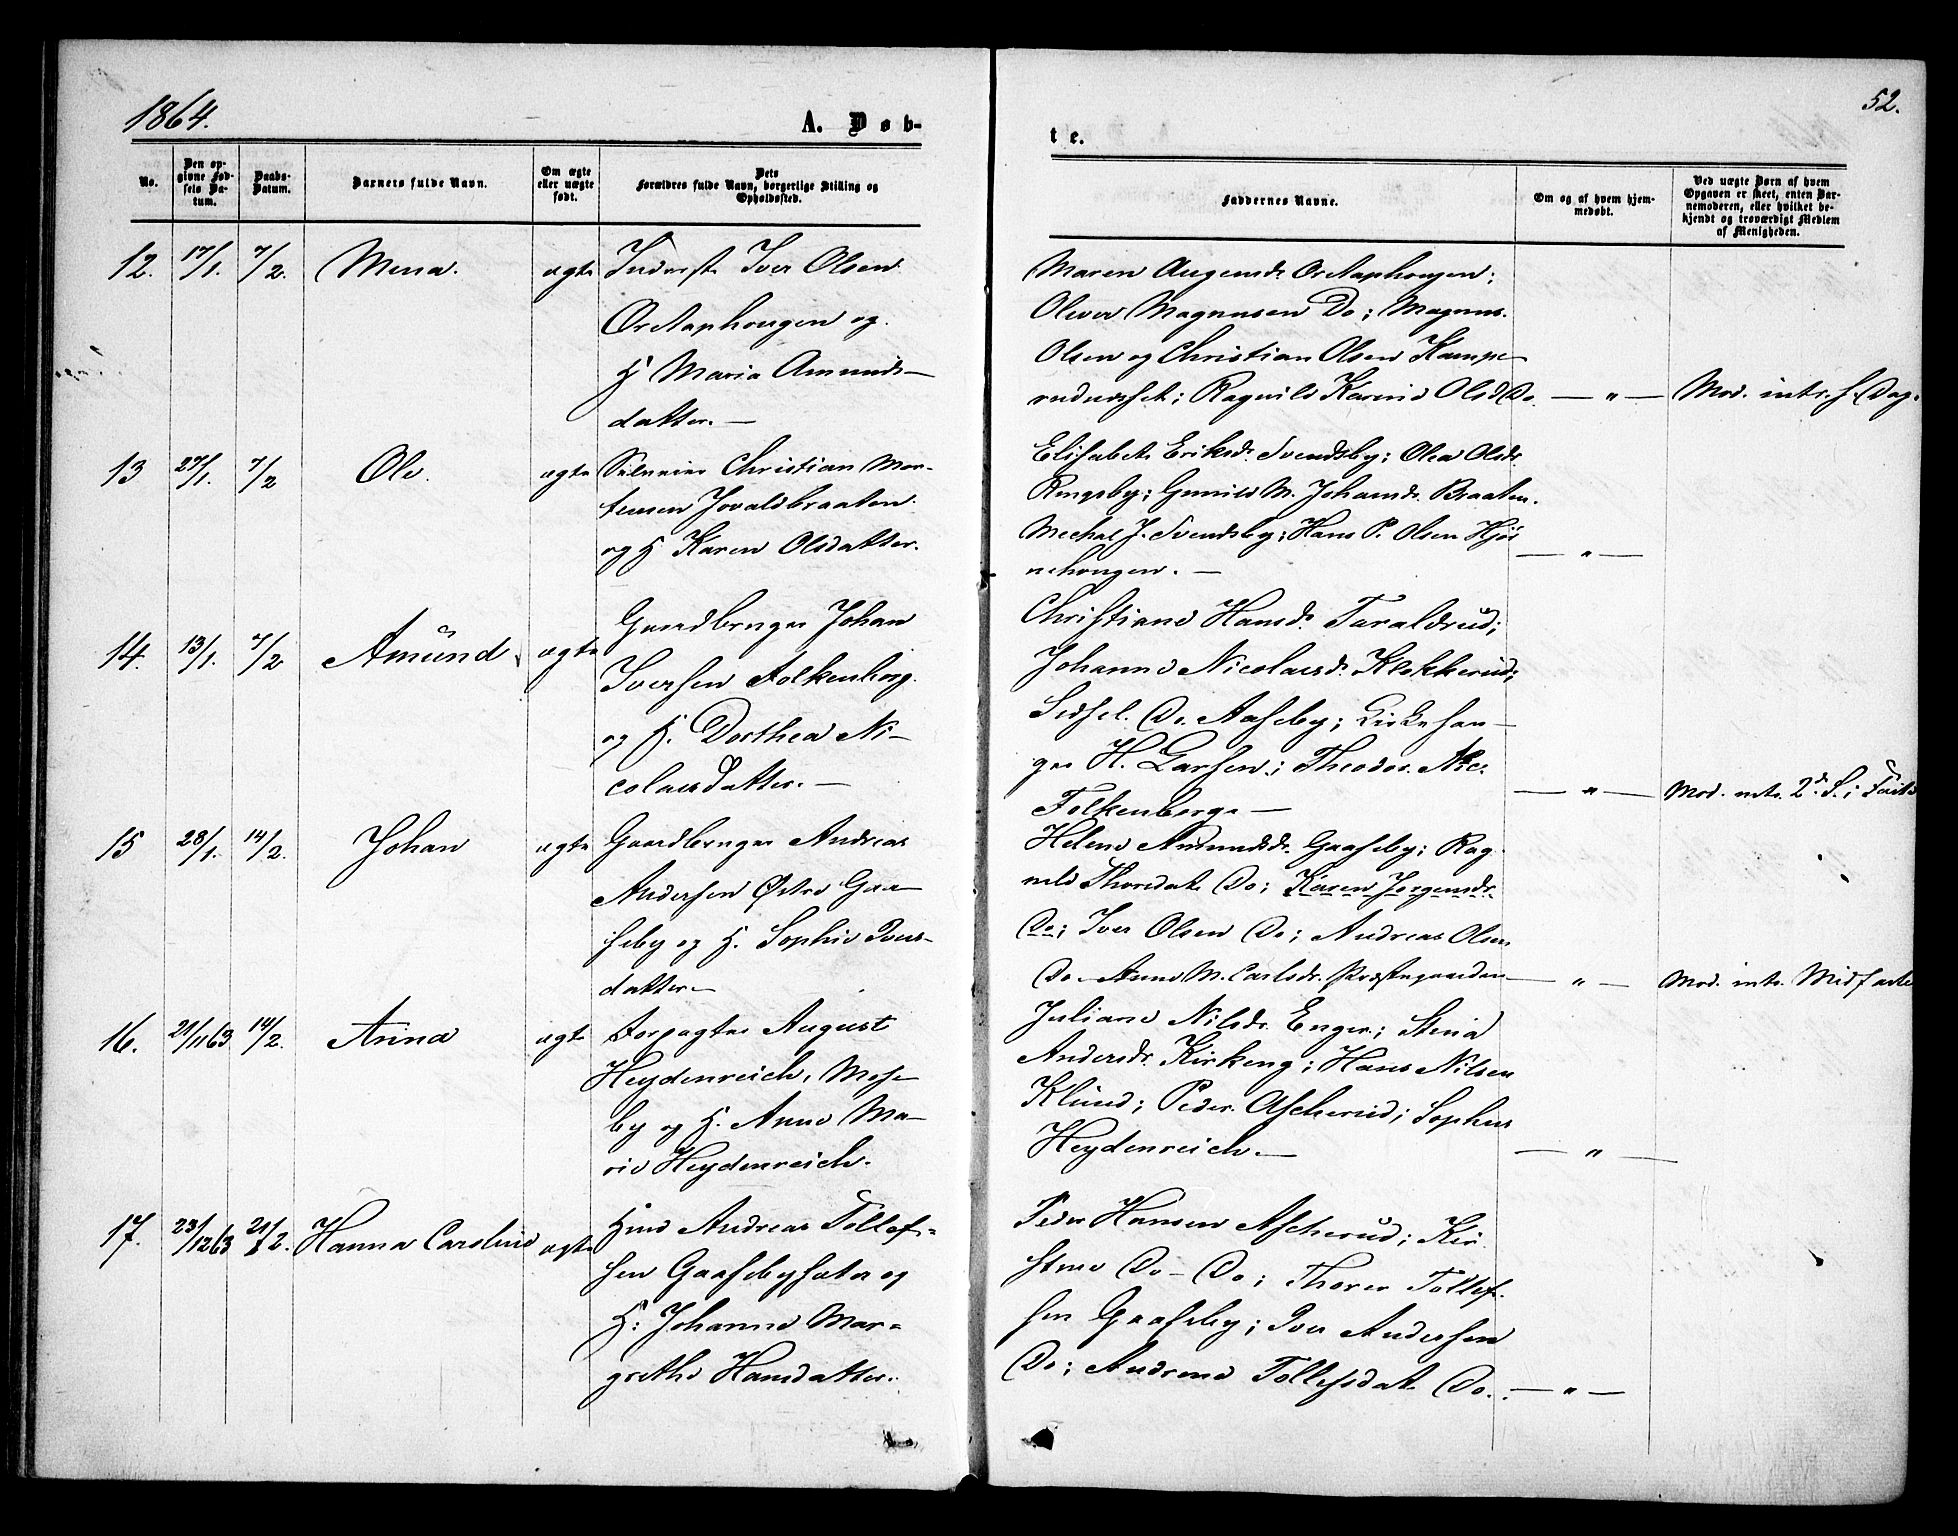 1864.
52.
A. Døb-
te.
No.
Den op-
givne Fød-
sels Da-
tum.
Daabs-
Datum.
Barnets fulde Navn.
Om ægte
eller uægte
født.
Dets
Forældres fulde Navn, borgerlige Stilling og
Opholdssted.
Faddernes Navne.
Om og af hvem hjem-
medøbt.
Ved uægte Børn af hvem
Opgaven er skeet, enten Bar-
nemoderen, eller hvilket be-
kjendt og troværdigt Medlem
af Menigheden.
12. 17/1. 7/2. Mina. ægte Inderst Iver Olsen
og
H Maria Amunds-
datter. —
Maren
Oliver Magnusen Do; Magnus
Olsen og Christian Olsen
Ragnild Karine Olsd Do. — " — Mod. intr. s. Dag.
13 27/1. 7/2 Ole. ægte Selveier Christian Mor-
tensen Jovaldbraaten
og H Karen Olsdatter.
Elisabet Eriksdr. Svendsby; Olea Olsdr.
Ringsby; Gunild M. Johansdr. Braaten.
Michal J. Svendsby; Hans P. Olsen Hjør
nehougen. — — " —
14. 13/1. 7/2 Amund ægte Gaardbruger Johan
Iversen Folkenborg
og H. Dorthea Ni-
colaisdatter. —
Christiane Hansdr. Taraldrud;
Johanne Nicolaisdr. Klokkerud;
Sidsel Do. Aaseby; Kirkesan-
ger H. Larsen; Theodor Nic.
Folkenborg — — " — Mod. intr. 2d. S. i Faste
15 28/1. 14/2. Johan ægte Gaardbruger Andreas
Andersen Østre Gaa-
seby og H. Sophie Ivers-
datter. —
Helene Amundsdr. Gaaseby; Rag-
nild Thorsdat. Do; Karen Jørgensdr.
Do; Iver Olsen Do; Andreas Olsen
Do — Anne M. Carlsdr. Præstegaarden — " — Mod. intr. Midfaste
16. 21/11 63 14/2. Anna ægte Forpagter August
Heydenreich, Mose-
by og H. Anne Ma-
rie Heydenreich.
Juliane Nilsdr. Enger; Stina
Andersdr. Kirkeng; Hans Nilsen
Klund; Peder Ascherud; Sophus
Heydenreich. — — " —
17. 23/12 63 21/2. Hanna Caroline ægte Andreas Tollef-
sen Gaasebysæter og
H: Johanne Mar-
grethe Hansdatter.
Peder Hansen Ascherud; Kir-
stine Do — Do; Thorer Tollef-
sen Gaaseby; Iver Andersen
Do; Andrine Tollefsdat. Do. — " —